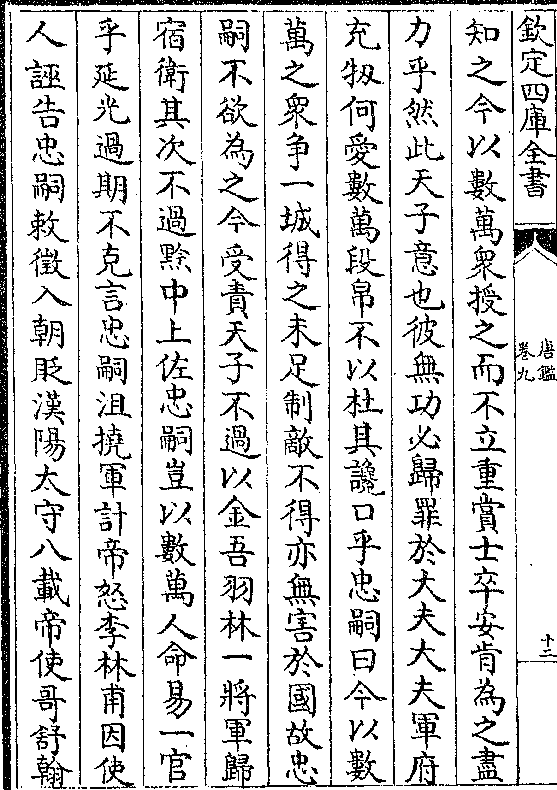 欽定四庫全書
唐鑑
卷九
十二
知之今以數萬衆授之而不立重賞士卒安肯為之盡
力乎然此天子意也彼無功必歸罪於大夫大夫軍府
充牣何愛數萬段帛不以杜其讒口乎忠嗣曰今以數
萬之衆争一城得之未足制敵不得亦無害於國故忠
嗣不欲為之今受責天子不過以金吾羽林一將軍歸
宿衛其次不過黔中上佐忠嗣豈以數萬人命易一官
乎延光過期不克言忠嗣沮撓軍計帝怒李林甫因使
人誣告忠嗣敕徵入朝貶漢陽太守八載帝使哥舒翰